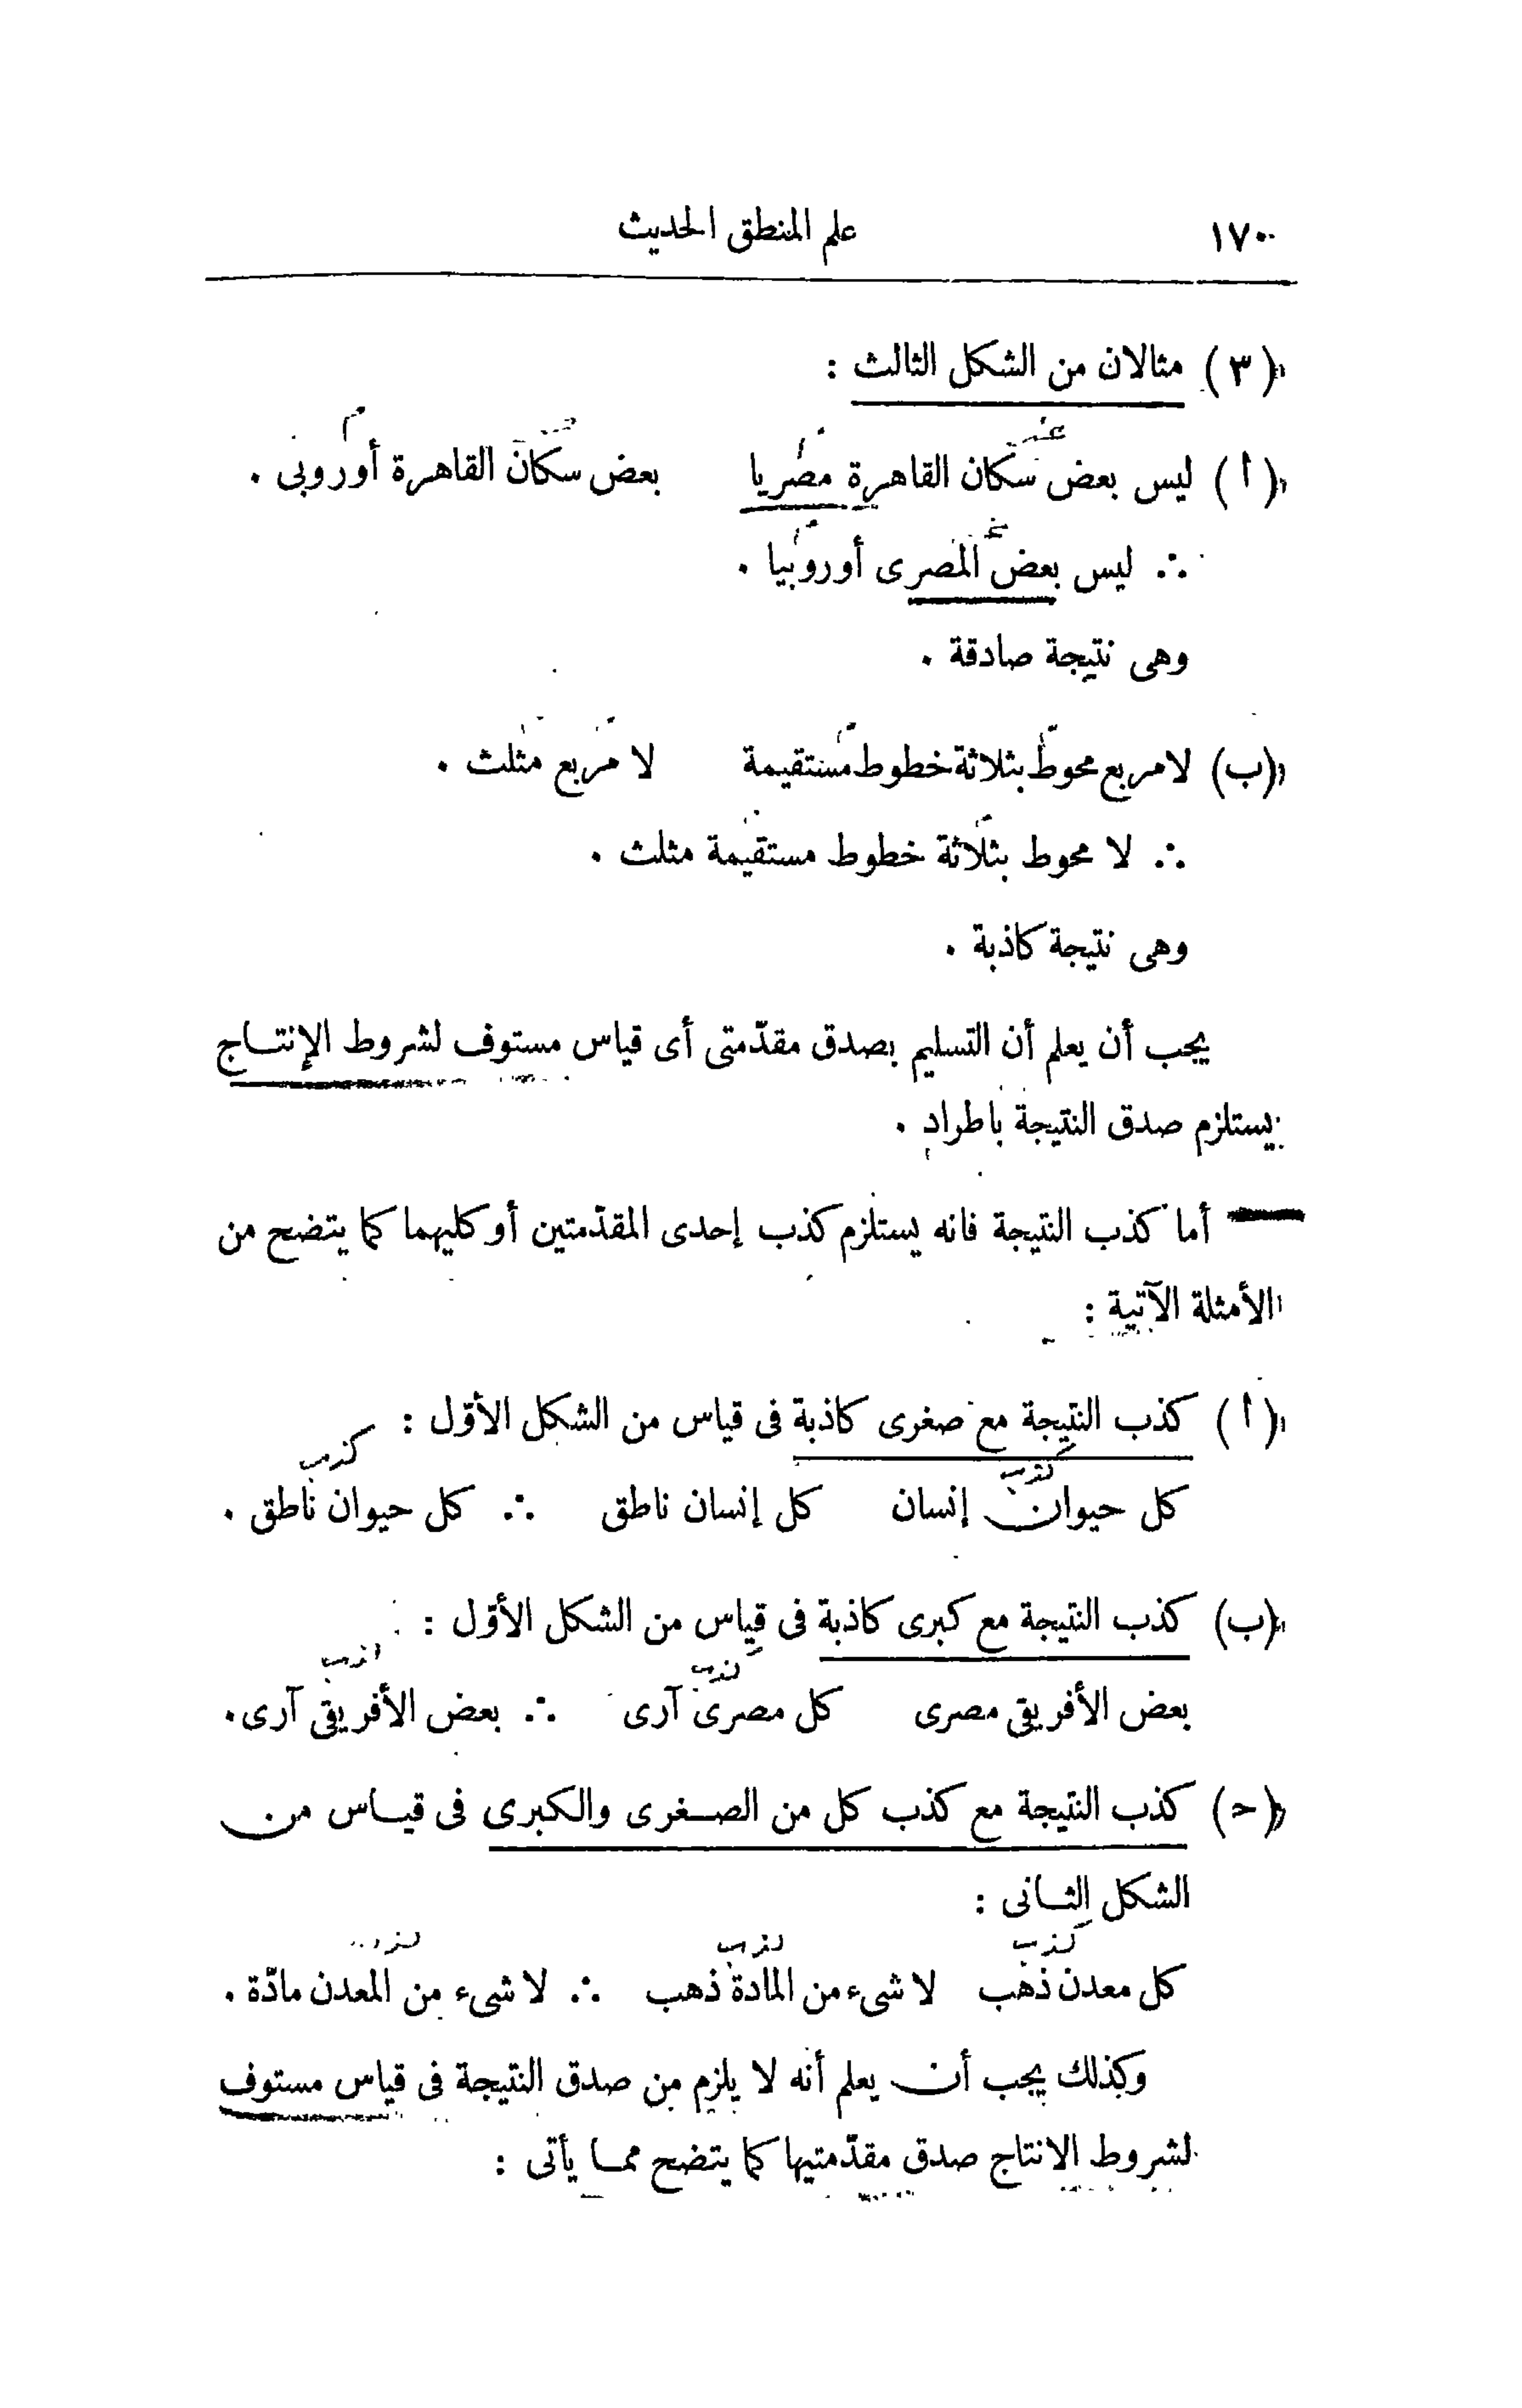 ١٧٠ علم المنطق الحديث
(٣) مثالان من الشكل الثالث :
(أ) ليس بعض سكان القاهرة مصريا بعض سكان القاهرة أوروبى .
∴ ليس بعض المصرى أوروبيا .
وهى نتيجة صادقة .
(ب) لا مربع محوط بثلاثة خطوط مستقيمة لا مربع مثلث .
∴ لا محوط بثلاثة خطوط مستقيمة مثلث .
وهى نتيجة كاذبة .
يجب أن يعلم أن التسليم بصدق مقدّمتى أى قياس مستوف لشروط الإنتاج
يستلزم صدق النتيجة باطراد .
أما كذب النتيجة فانه يستلزم كذب إحدى المقدّمتين أو كليهما كما يتضح من
الأمثلة الآتية :
(أ) كذب النتيجة مع صغرى كاذبة فى قياس من الشكل الأوّل :
كذب
كذب
كل حيوان إنسان كل إنسان ناطق ∴ كل حيوان ناطق .
(ب) كذب النتيجة مع كبرى كاذبة فى قياس من الشكل الأوّل :
كذب كذب
بعض الأفريقى مصرى كل مصرى آرى ∴ بعض الأفريقى آرى .
(حـ) كذب النتيجة مع كذب كل من الصغرى والكبرى فى قياس من
الشكل الثانى :
كذب كذب كذب
كل معدن ذهب لا شىء من المادة ذهب ∴ لا شىء من المعدن مادّة .
وكذلك يجب أن يعلم أنه لا يلزم من صدق النتيجة فى قياس مستوف
لشروط الانتاج صدق مقدّمتيها كما يتضح مما يأتى :